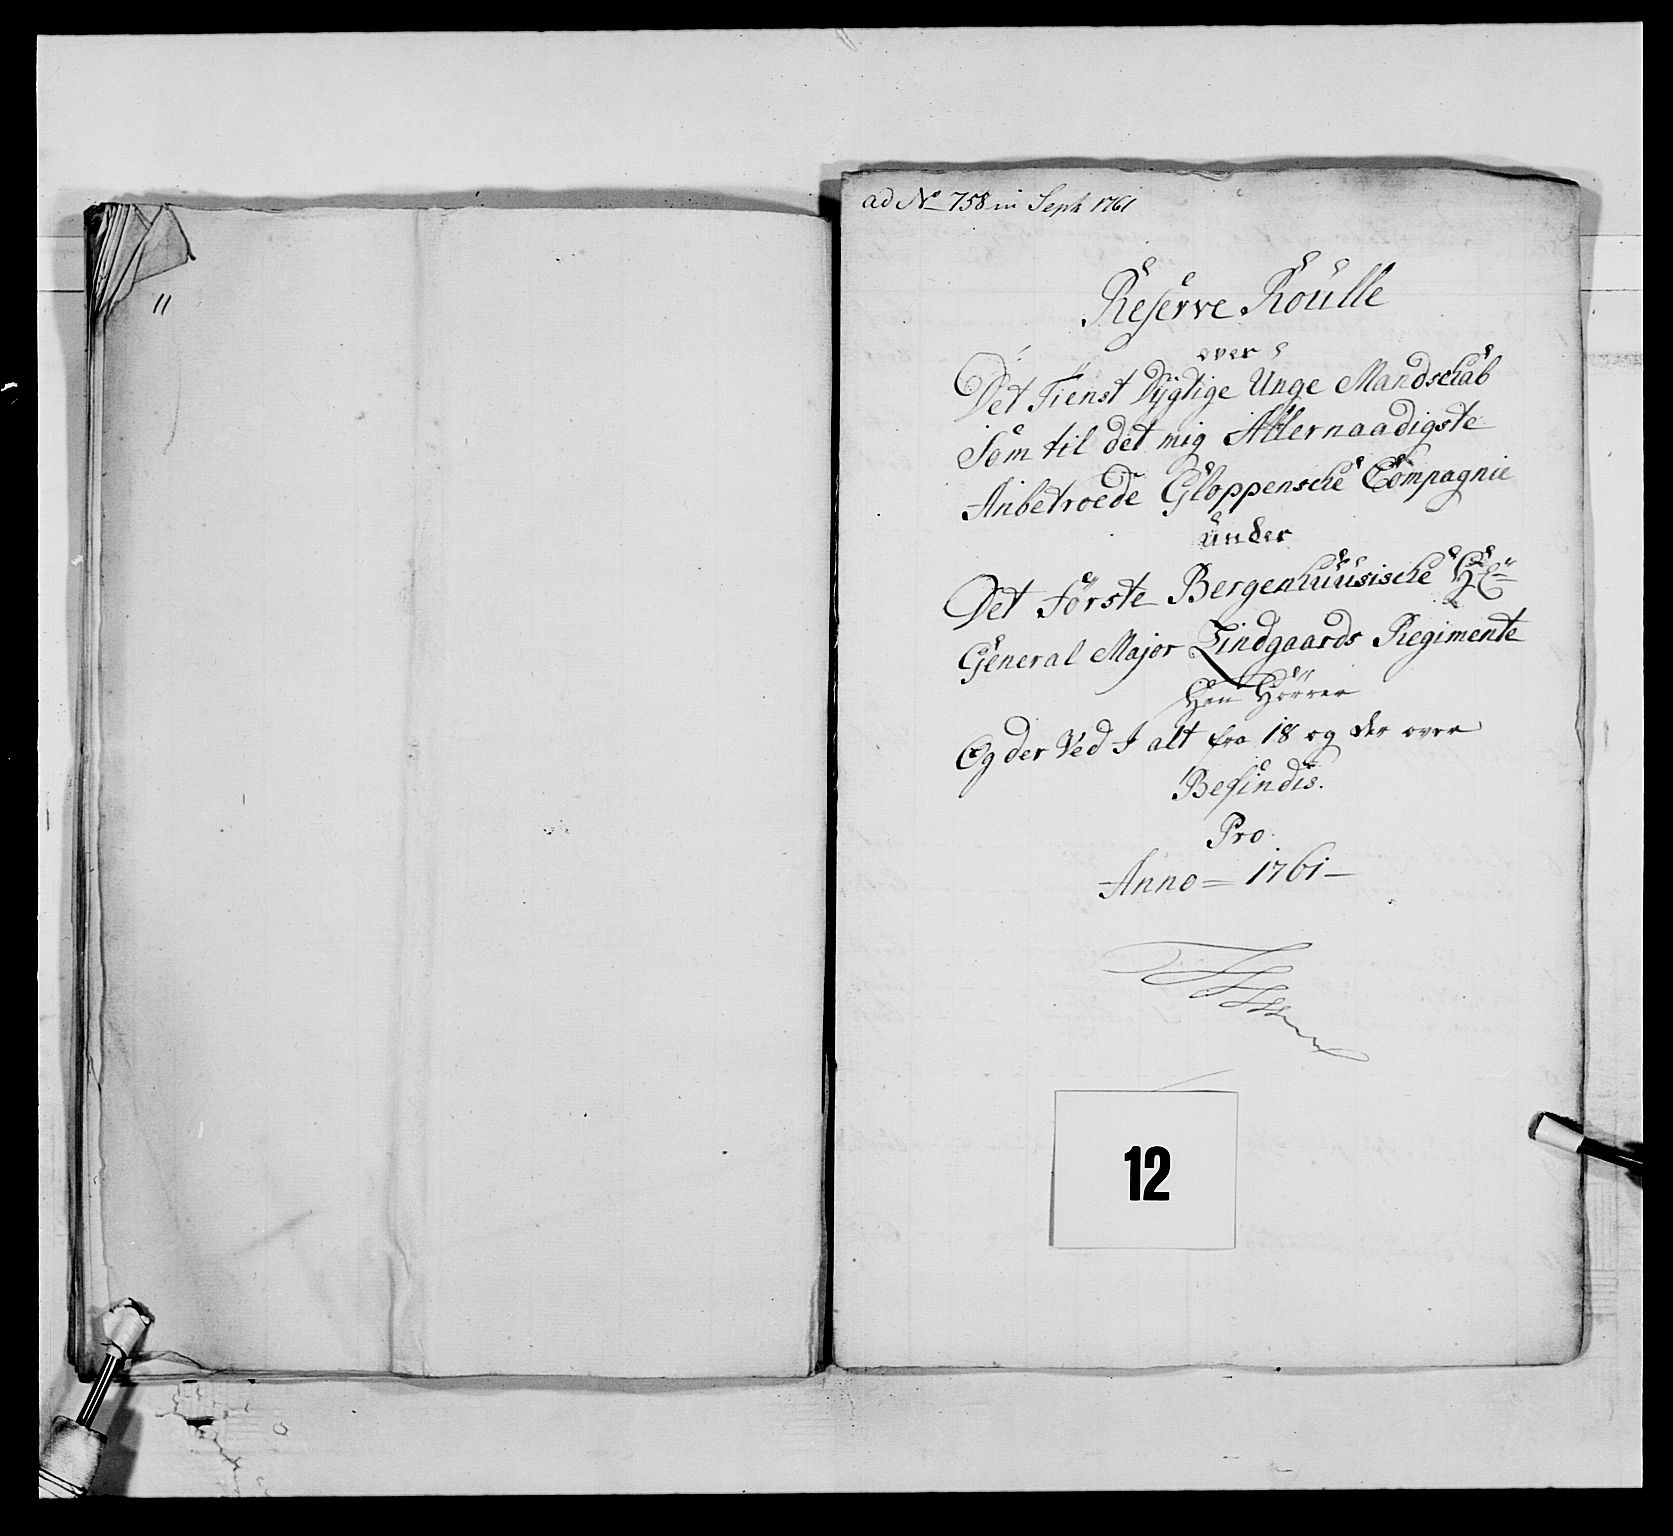 11
ad No 758 in Sept 1761
Reserve Roulle
over
Det Tienst Dÿgtige Unge Mandschab
Som til det mig Allernaadigste
Anbetroede Gloppensche Compagnie
under
Det Förste Bergenhuusische Hr
General Major Lindgaards Regimente
Hen Hörrer
Og der Ved I alt fra 18 og der over
Befindis.
Pro
Anno = 1761 –
12